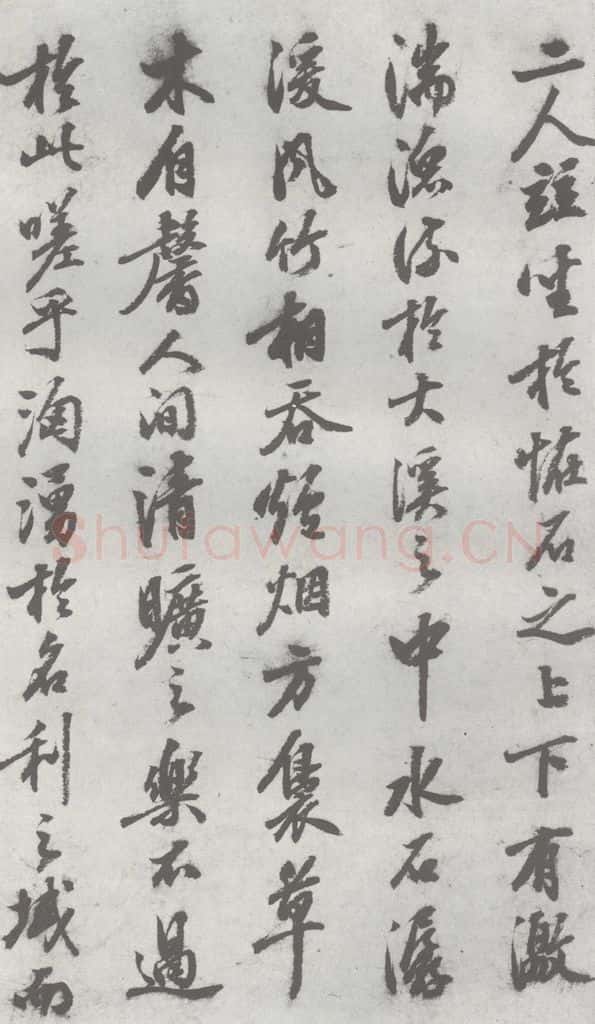 二人竝坐於恠石之上下有激
湍潨流於大溪之中水石潺
湲風竹相吞爐烟方裊草
木自馨人間清曠之樂不過
於此嗟乎洶湧於名利之域而
Shufawang.CN